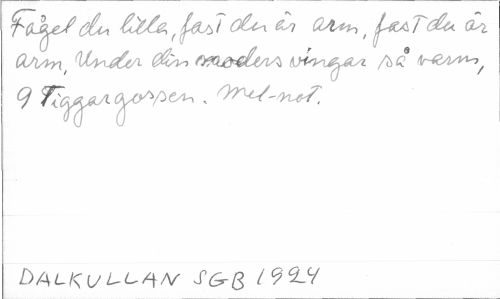 Fågel du lilla, fast du är arm, fast du är
arm, Under din moders vingar så varm,
9 Tiggargossen. Mel-not.
DALKULLAN SGB 1924